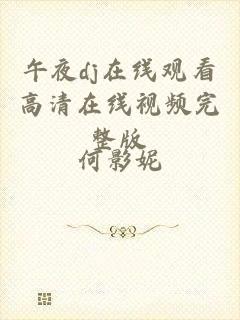 午夜dj在线观看
高清在线视频完
整版
何影妮